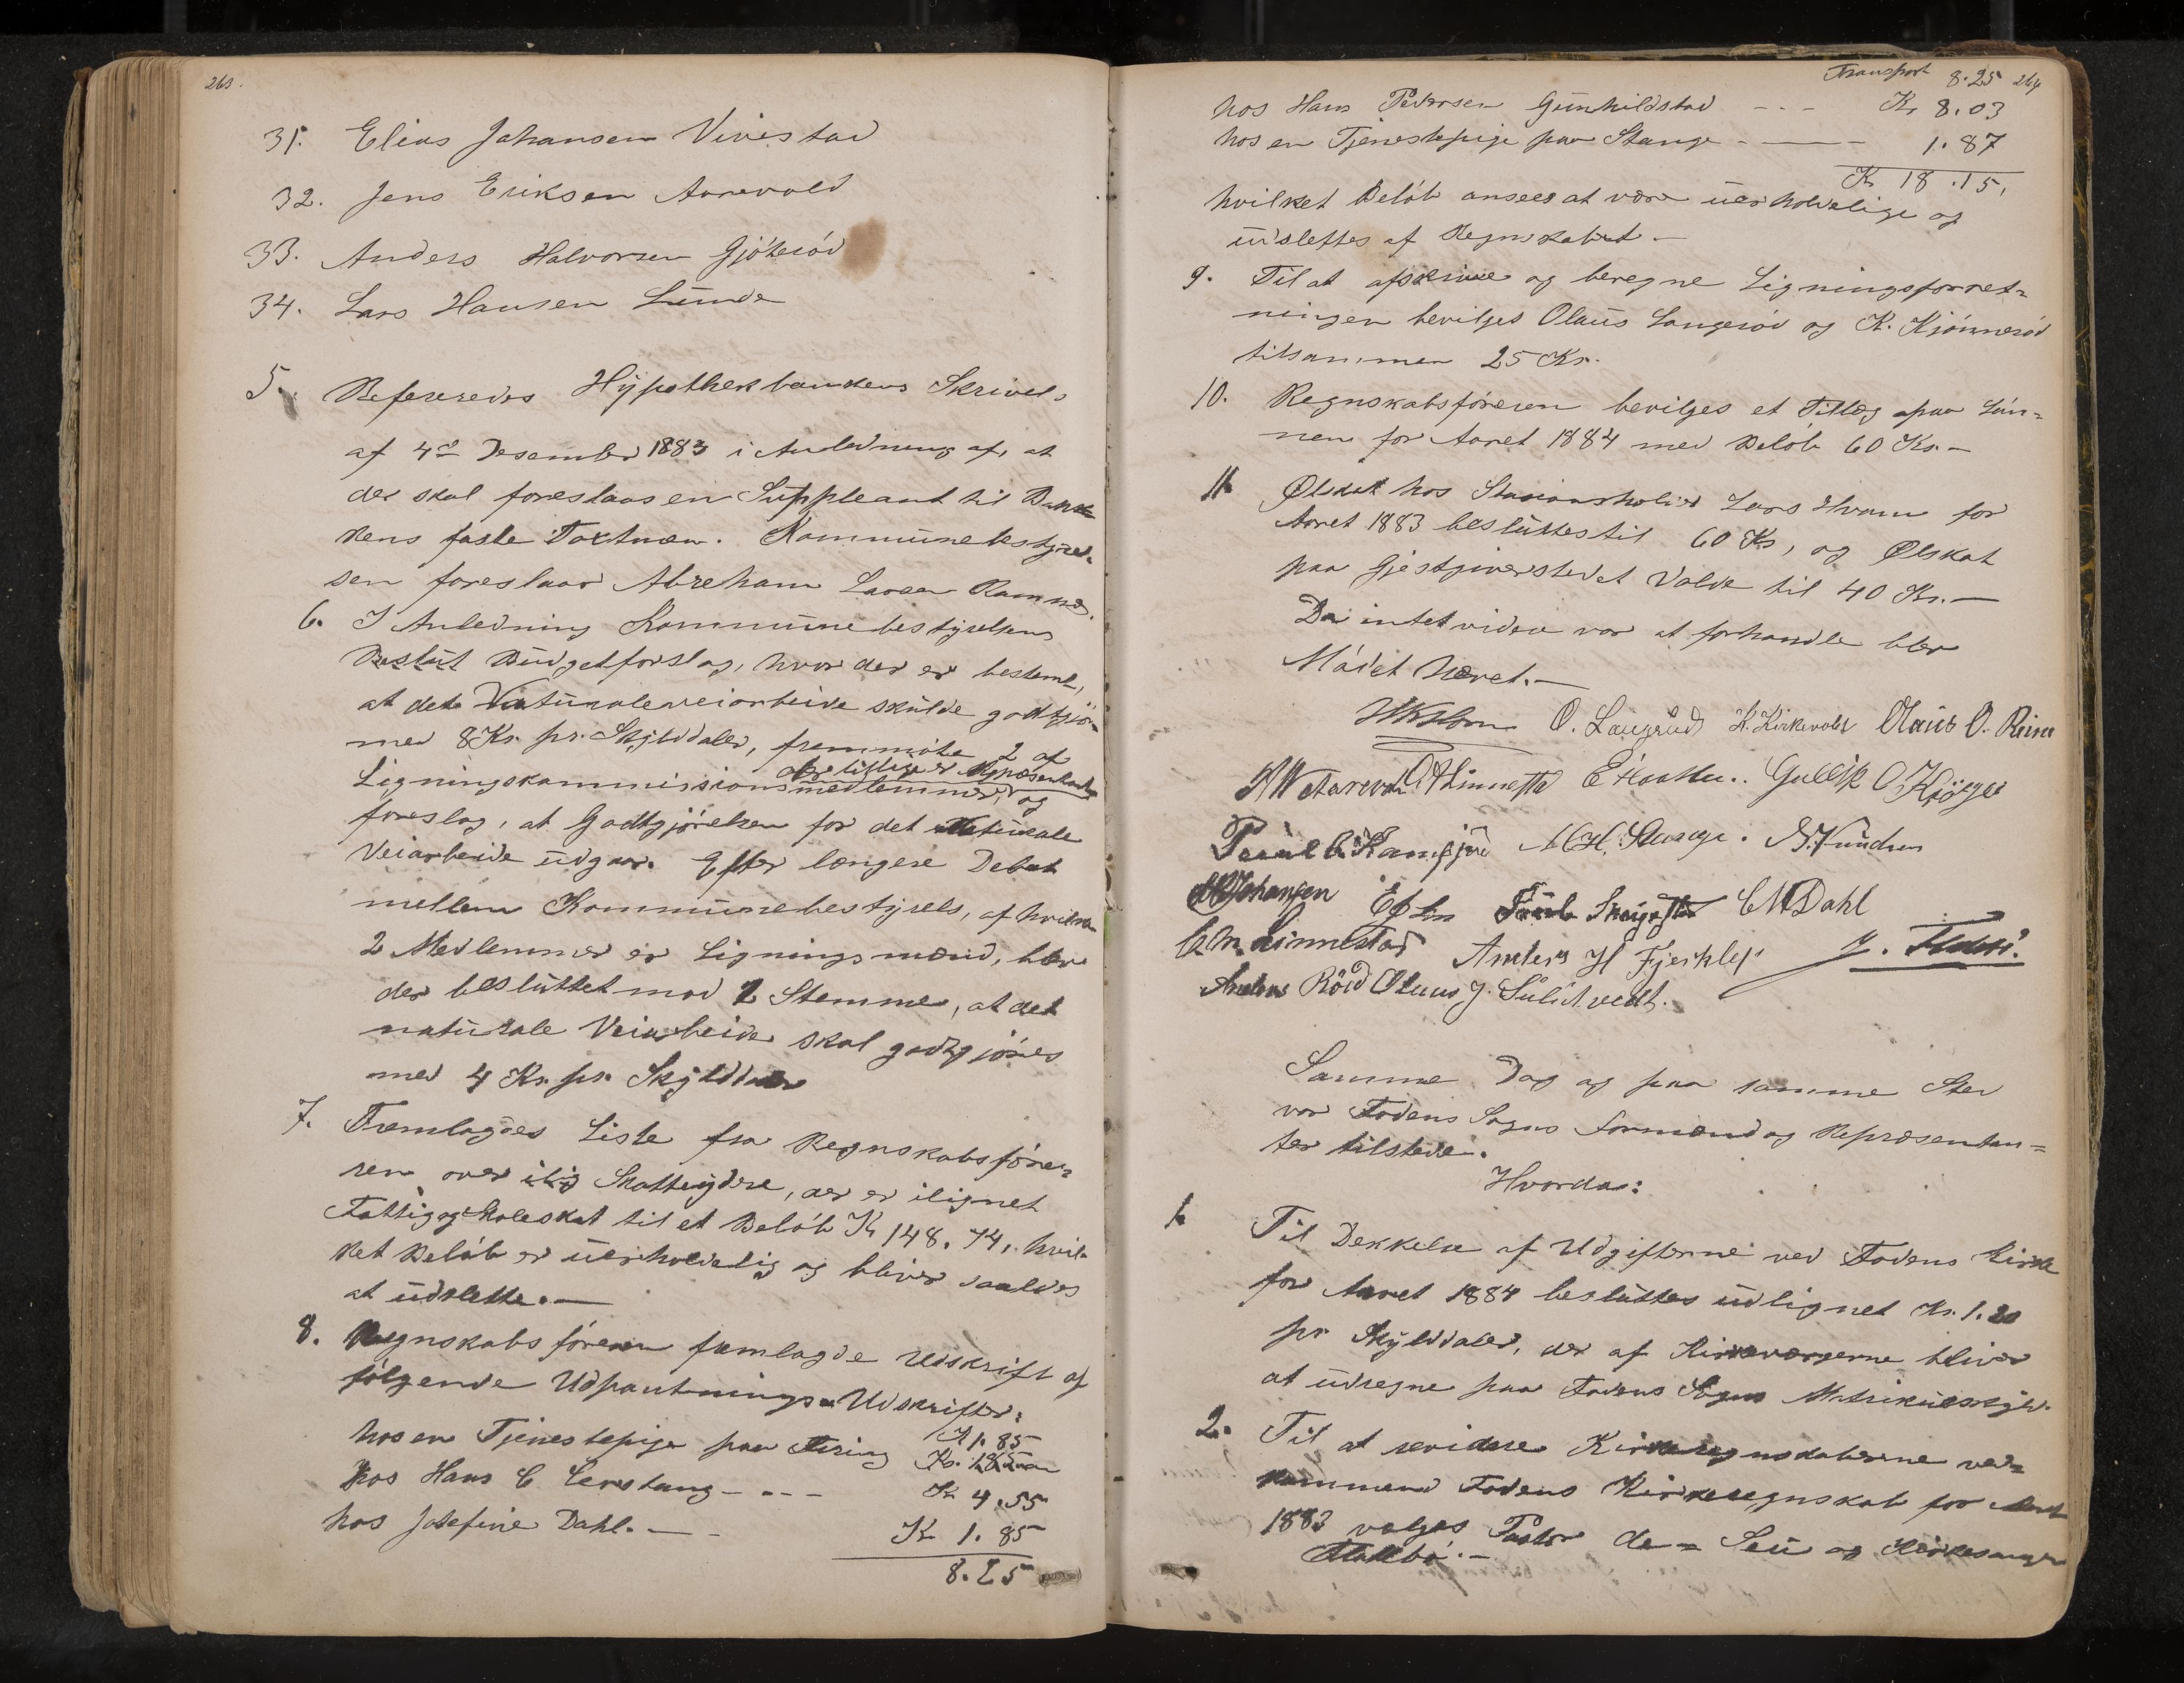 263.
31. Elias Johansen Vivestad
32. Jens Eriksen Aarevold
33. Anders Halvorsen Gjöterød
34. Lars Hansen Lunde
5. Refereredes Hypothekbankens Skrivels
af 4de Desember 1883 i Anledning af, at
der skal foreslaaes en Suppleant til Bank-
kens faste Taxtmæn. Kommunebestyrel-
sen foreslaar Abreham Larsen Ramnæs.
6. I Anledning Kommunebestyrelsens
Beslut Budgetforslag, hvor der er bestemt,
at det Naturaleveiarbeide skulde godtgjöres
med 8 Kr. pr. Skylddaler, fremmöte 2 af
Ligningskommissionsmedlemmer, og
foreslog, at Godtgjörelsen for det Naturale
Veiarbeide udgaar. Efter længere Debat
mellem Kommunebestyrels, af hvilke
2 Medlemmer er Ligningsmænd, blev
der besluttet mod 2 Stemme, at det
naturale Veiarbeide skal godtgjöres
med 4 Kr. pr. Skylddaler
7. Fremlagdes Liste fra Regnskabsföre-
ren over Skatteydere, der er ilignet
Fattig og Skoleskat til et Belöb Kr 148.74, hvil-
ket Belöb er uerholdelig og bliver saaledes
at udslette. —
8. Regnskabsföreren fremlagde Udskrift af
fölgende Udpantnings-Udskrifter:
hos en Tjenestepige paa Kr 1.85
hos Hans C - - - Kr 4.55
hos Josefine Dahl. — - Kr 1.85
8.25
Transport 8.25 264
hos Hans Pedersen Gunhildstad - - - Kr 8.03
hos en Tjenestepige paa Stange - — - 1.87
Kr 18.15,
hvilket Belöb ansees at være uerholdelige og
udslettes af Regnskabet. —
9. Til at afskrive og beregne Ligningsforret-
ningen bevilges Olaus Langeröd og K. Kjönneröd
tilsammen 25 Kr.
10. Regnskabsföreren bevilges et Tillæg paa Lön-
nen for Aaret 1884 med Belöb 60 Kr. —
11. Ølskat hos Stasionsholder Lars Hvam for
Aaret 1883 besluttes til 60 Kr, og Ølskat
paa Gjestgiverstedet Valde til 40 Kr. —
Da intet videre var at forhandle blev
Mödet hævet. —
O. Langrud K. Kirkevold Olaus O. Reine
Gullik O. Kjöge
M.H. Stange. N. Knudsen
Johansen C M Dahl
Linnestad Anders H
Anders Röed Oluus J.
Samme Dag og paa samme Sted
var Fodens Sogns Formænd og Repræsentan-
ter tilstede.
Hvorda:
1. Til Dekkelse af Udgifterne ved Fodens Kirke
for Aaret 1884 besluttes udlignet Kr. 1.20
pr Skylddaler, der af Kirkeværgerne bliver
at udregne paa Fodens Sogns Matrikuleskyld.
2. Til at revidere Kirkeregnskaberne ved-
kommend Fodens Kirkeregnskab for Aaret
1883 valges Pastor de = Seu og Kirkesanger